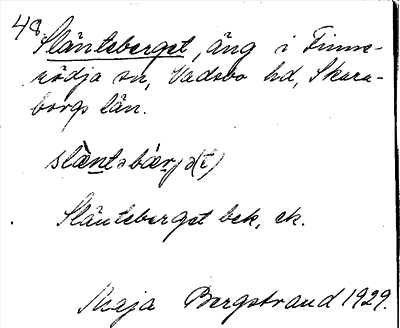 48.
Slänteberget, äng i Finne-
rödja sn, Vadsbo hd, Skara-
borgs län.
slàntəbærjə(t)
Slänteberget bek, ek.
Maja Bergstrand 1929.